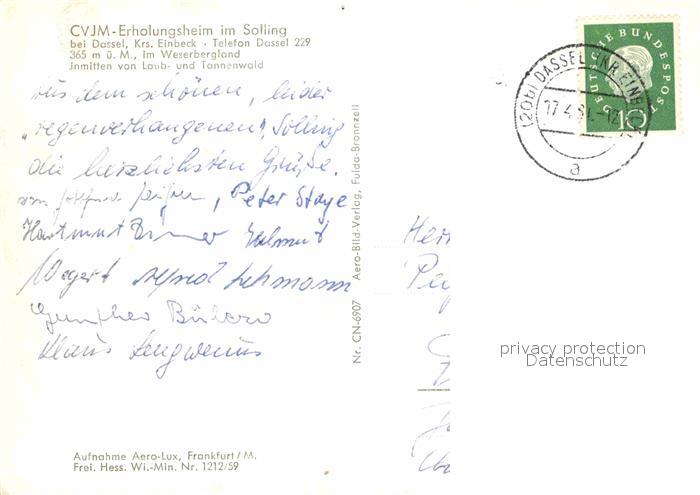 CVJM-Erholungsheim im Solling
bei Dassel, Krs. Einbeck · Telefon Dassel 229
365 m ü. M., im Weserbergland
Inmitten von Laub- und Tannenwald
Aus dem schönen, leider
„regenverhangenen", Solling
die herzlichsten Grüße.
Peter Stage
Hartmut Helmut
Wegert Alfred Lehmann
Gunther Bülow
Klaus
Aufnahme Aero-Lux, Frankfurt/M.
Frei. Hess. Wi.-Min. Nr. 1212/59
Nr. CN-6907 Aero-Bild-Verlag, Fulda-Bronnzell
DEUTSCHE BUNDESPOST
10
(20b) DASSEL (KR. EINBECK)
17.4.61.-12
a
Herr
privacy protection
Datenschutz